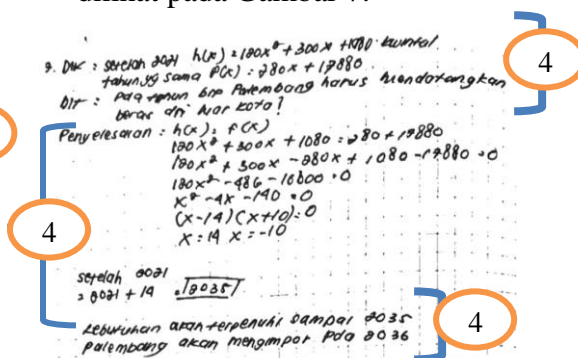 9. Dik : setelah 2021 h(x) = 120x² + 300x + 1080 kwintal
tahun yg sama P(x) : 780x + 17880
Dit : pada tahun brp Palembang harus mendatangkan
beras dri luar kota?
Penyelesaian : h(x) = f(x)
120x² + 300x + 1080 = 780 + 17880
120x² + 300x - 780x + 1080 - 17880 = 0
120x² - 480 - 16800 = 0
x² - 4x - 140 = 0
(x-14)(x+10) = 0
x = 14 x = -10
setelah 2021
= 2021 + 14 = 2035
kebutuhan akan terpenuhi sampai 2035
palembang akan mengimpor pda 2036
4
4
4